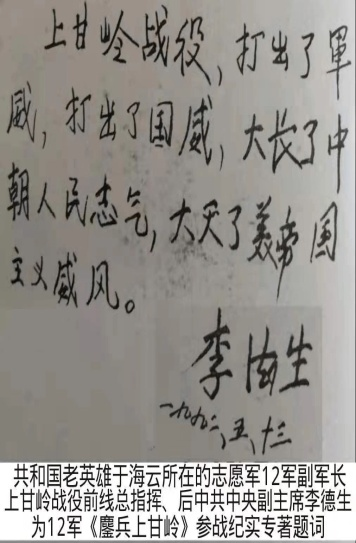 上甘岭战役，打出了軍
威，打出了国威，大长了中
朝人民志气，大灭了美帝国
主义威风。
李德生
一九九二、五、十三
共和国老英雄于海云所在的志愿军12军副军长
上甘岭战役前线总指挥、后中共中央副主席李德生
为12军《鏖兵上甘岭》参战纪实专著题词